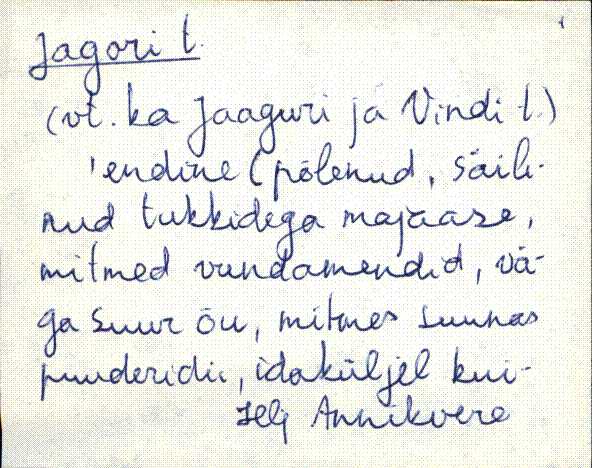 Jagori t.
(vt. ka Jaaguri ja Vindi t.)
'endine (põlenud, säili-
nud tukkidega majaase,
mitmed vundamendid, vä-
ga suur õu, mitmes suunas
puuderidu, idaküljel kui-
Hlj Annikvere